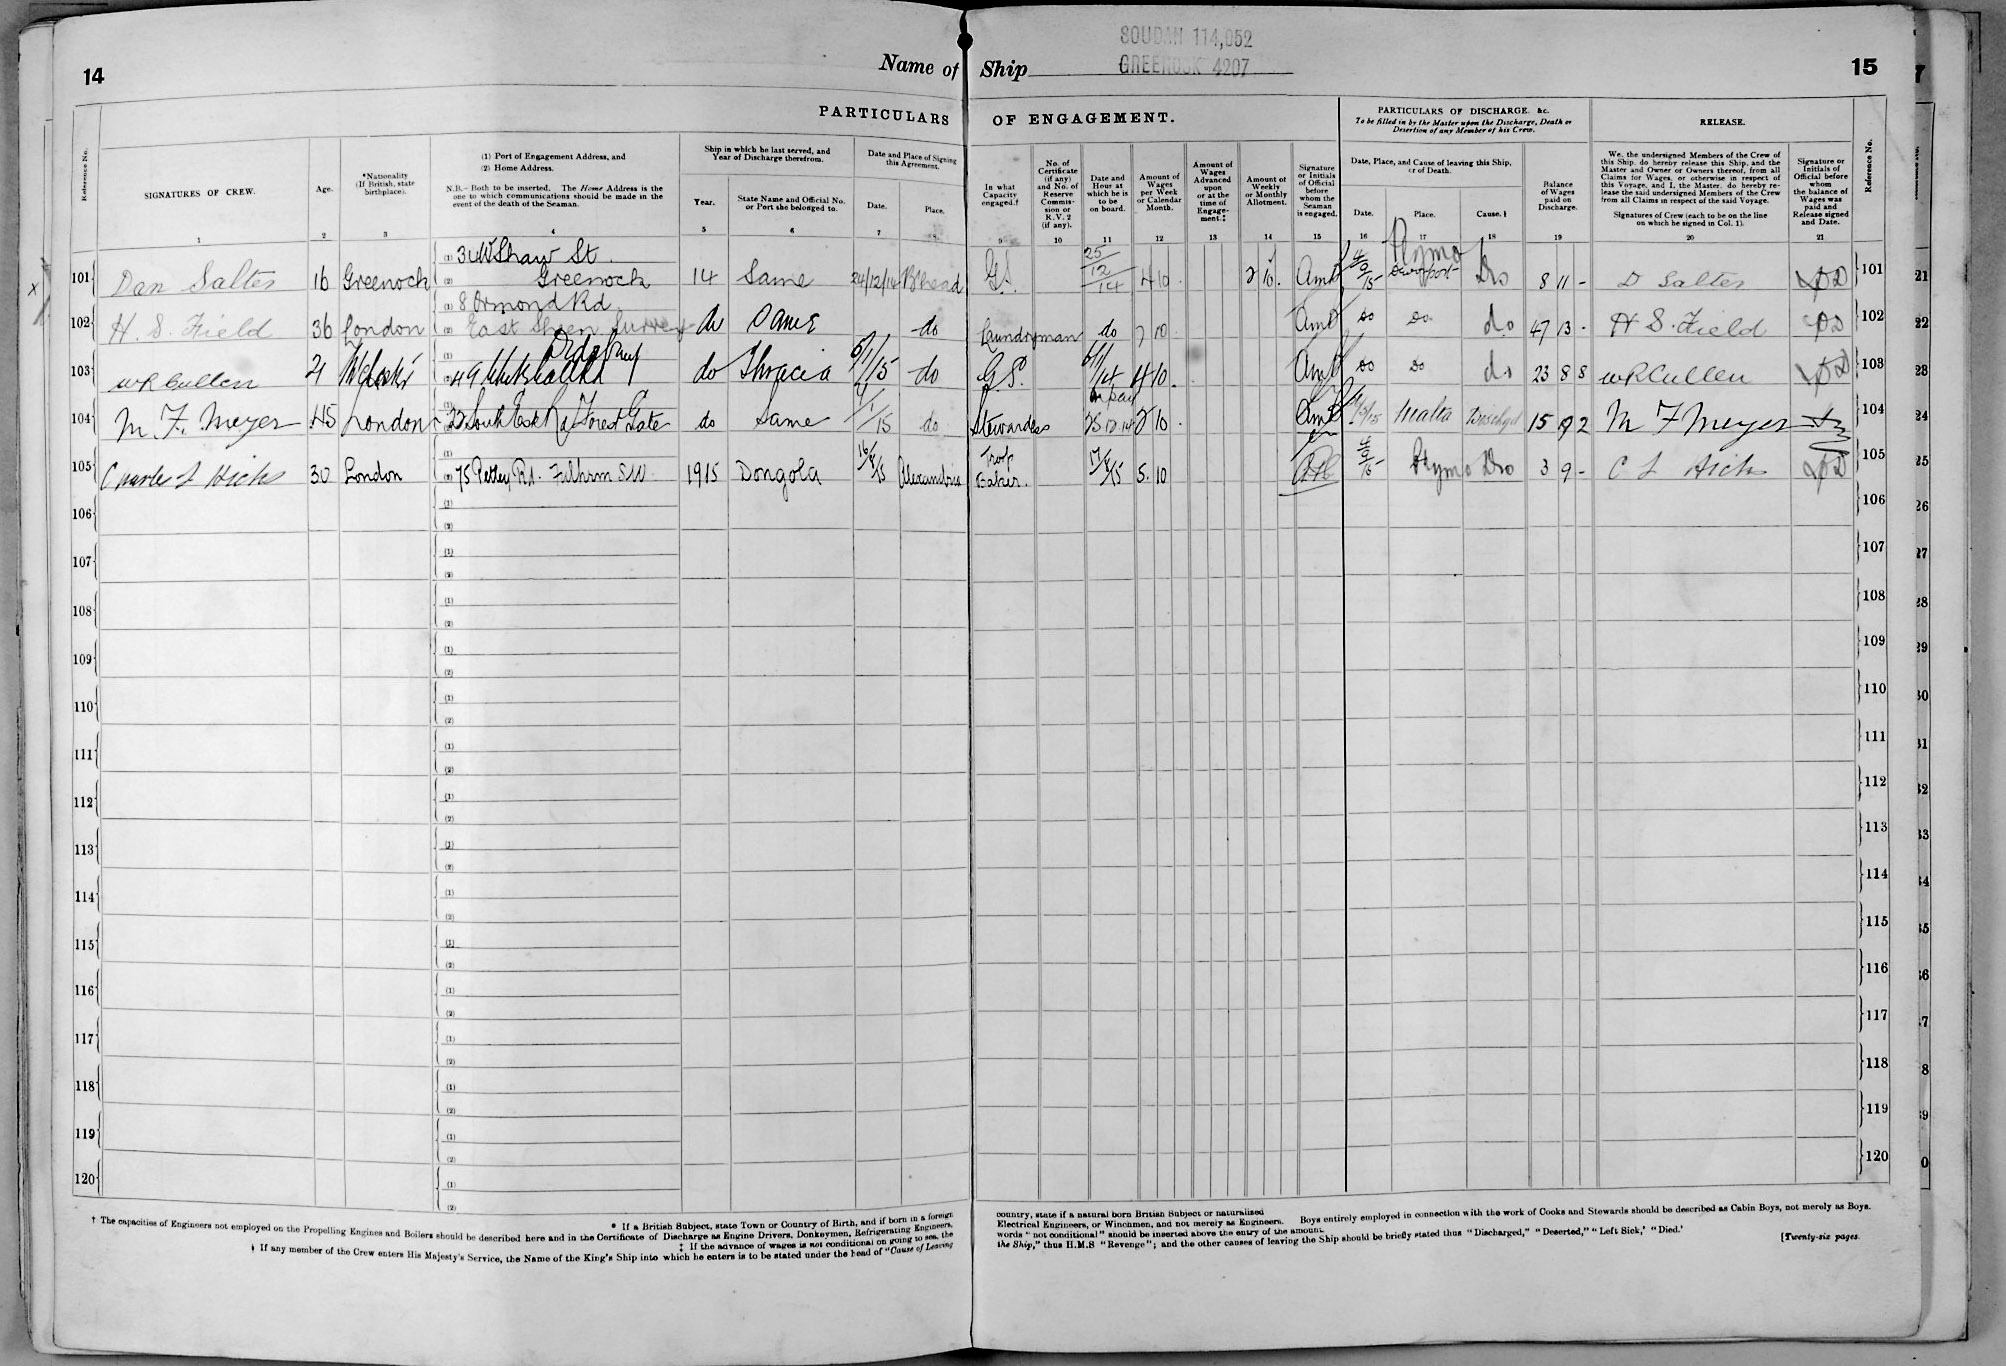 SOUDAN 114,052
GREENOCK 4207
14
Name of Ship
15
PARTICULARS OF ENGAGEMENT.
PARTICULARS OF DISCHARGE. &c.
To be filled in by the Master upon the Discharge, Death or Desertion of any Member of his Crew.
RELEASE.
Reference No.
SIGNATURES OF CREW.
Age.
*Nationality (If British, state birthplace).
(1) Port of Engagement Address, and
(2) Home Address.
N.B.- Both to be inserted. The Home Address is the one to which communications should be made in the event of the death of the Seaman.
Ship in which he last served, and Year of Discharge therefrom.
Year.
State Name and Official No. or Port she belonged to.
Date and Place of Signing this Agreement.
Date.
Place.
In what Capacity engaged.†
No. of Certificate (if any) and No. of Reserve Commission or R.V. 2 (if any).
Date and Hour at which he is to be on board.
Amount of Wages per Week or Calendar Month.
Amount of Wages Advanced upon or at the time of Engagement.‡
Amount of Weekly or Monthly Allotment.
Signature or Initials of Official before whom the Seaman is engaged.
Date, Place, and Cause of leaving this Ship, or of Death.
Date.
Place.
Cause.
Balance of Wages paid on Discharge.
We, the undersigned Members of the Crew of this Ship, do hereby release this Ship, and the Master and Owner or Owners thereof, from all Claims for Wages, or otherwise in respect of this Voyage, and I, the Master, do hereby release the said undersigned Members of the Crew from all Claims in respect of the said Voyage.
Signatures of Crew (each to be on the line on which he signed in Col. 1).
Signature or Initials of Official before whom the balance of Wages was paid and Release signed and Date.
Reference No.
1 2 3 4 5 6 7 8 9 10 11 12 13 14 15 16 17 18 19 20 21
101 Dan Salter 16 Greenock (1) 34 W Shaw St. (2) Greenock 14 Same 24/12/14 B'head G.S. 25/12/14 4 10 2 10. 4/9/15 Plymo Devonport Do 8 11 - D Salter 101
102 H. S. Field 36 London (1) 8 Ormond Rd (2) East Sheen Surrey do Same do Laundryman do 7 10 Do Do do 47 13 - H S. Field 102
103 W R Cullen 21 do Thracia 5/1/15 do G.S. 4 10. Do Do do 23 8 8 W R Cullen 103
104 M. F. Meyer 45 London 22 South Esk Rd Forest Gate do Same 1/15 do Stewardess 2 10 Malta Dischgd 15 9 2 M F Meyer 104
105 Charles L Hicks 30 London Rd. Fulham SW 1915 Dongola 16/8/15 Alexandria Troop Baker. 17/8/15 5. 10 4/9/15 Plymo Do 3 9 - C L Hicks 105
106 (1) (2) 106
107 (1) (2) 107
108 (1) (2) 108
109 (1) (2) 109
110 (1) (2) 110
111 (1) (2) 111
112 (1) (2) 112
113 (1) (2) 113
114 (1) (2) 114
115 (1) (2) 115
116 (1) (2) 116
117 (1) (2) 117
118 (1) (2) 118
119 (1) (2) 119
120 (1) (2) 120
* If a British Subject, state Town or Country of Birth, and if born in a foreign country, state if a natural born British Subject or naturalized
† The capacities of Engineers not employed on the Propelling Engines and Boilers should be described here and in the Certificate of Discharge as Engine Drivers, Donkeymen, Refrigerating Engineers, Electrical Engineers, or Winchmen, and not merely as Engineers. Boys entirely employed in connection with the work of Cooks and Stewards should be described as Cabin Boys, not merely as Boys.
‡ If the advance of wages is not conditional on going to sea, the words "not conditional" should be inserted above the entry of the amount.
If any member of the Crew enters His Majesty's Service, the Name of the King's Ship into which he enters is to be stated under the head of "Cause of Leaving the Ship," thus H.M.S "Revenge"; and the other causes of leaving the Ship should be briefly stated thus "Discharged," "Deserted," "Left Sick,' "Died.'
[Twenty-six pages.